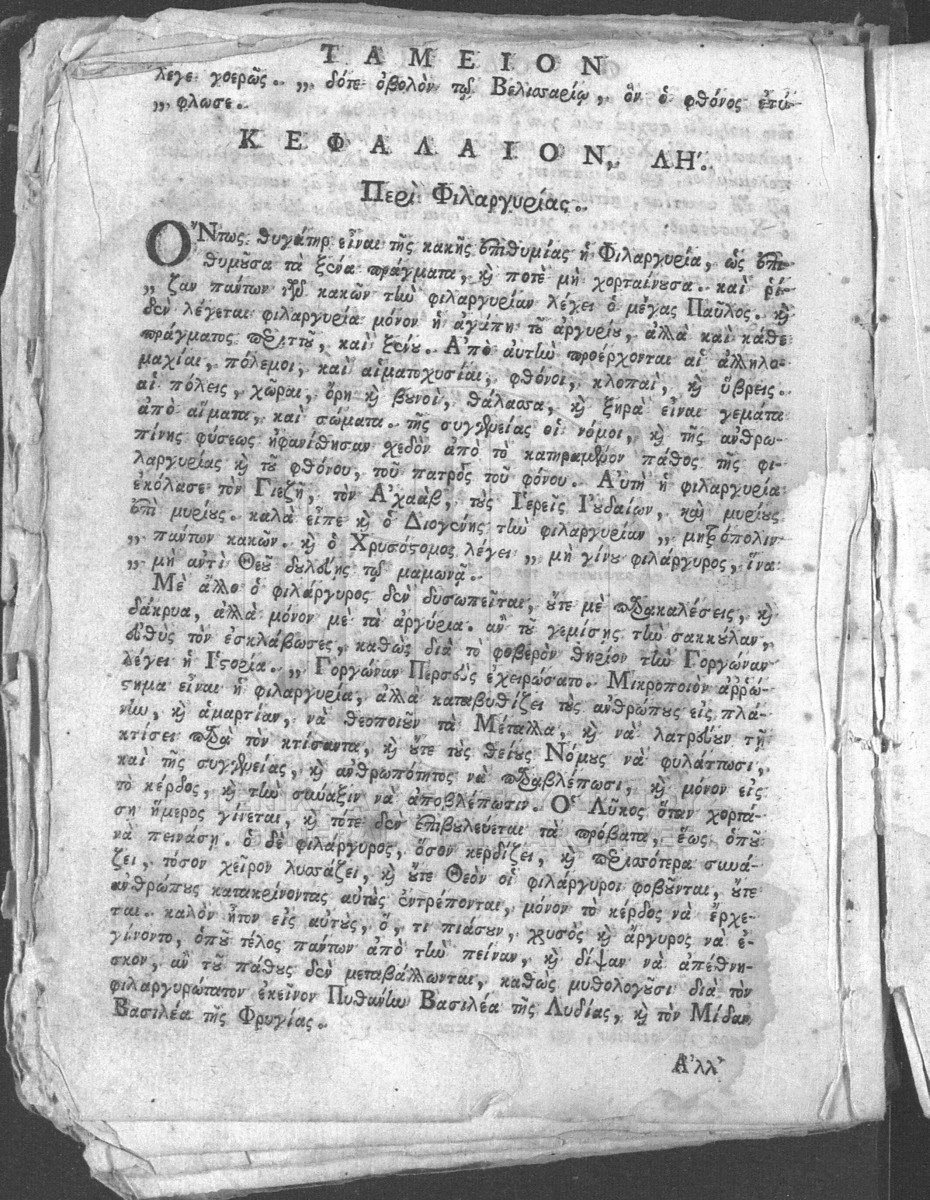 ΤΑΜΕΙΟΝ
λεγε γοερῶς. ,, δότε ὀβολὸν τῷ Βελισσαρίῳ, ὃν ὁ φθόνος ἐτύ-
,, φλωσε.
ΚΕΦΑΛΑΙΟΝ, ΛΗ΄.
Περὶ Φιλαργυρίας.
ὌΝτως θυγάτηρ εἶναι τῆς κακῆς ἐπιθυμίας ἡ Φιλαργυρία, ὡς ἐπι-
θυμοῦσα τὰ ξένα πράγματα, καὶ ποτὲ μὴ χορταίνουσα. καὶ ῥί-
,, ζαν πάντων τῶν κακῶν τὴν φιλαργυρίαν λέγει ὁ μέγας Παῦλος. καὶ
δὲν λέγεται φιλαργυρία μόνον ἡ ἀγάπη τοῦ ἀργυρίου, ἀλλὰ καὶ κάθε
πράγματος περιττοῦ, καὶ ξένου. Ἀπὸ αὐτὴν προέρχονται αἱ ἀλληλο-
μαχίαι, πόλεμοι, καὶ αἱματοχυσίαι, φθόνοι, κλοπαὶ, καὶ ὕβρεις.
αἱ πόλεις, χῶραι, ὄρη καὶ βουνοὶ, θάλασσα, καὶ ξηρὰ εἶναι γεμάτα
ἀπὸ αἵματα, καὶ σώματα. τῆς συγγενείας οἱ νόμοι, καὶ τῆς ἀνθρω-
πίνης φύσεως ἠφανίσθησαν σχεδὸν ἀπὸ τὸ κατηραμένον πάθος τῆς φι-
λαργυρίας καὶ τοῦ φθόνου, τοῦ πατρὸς τοῦ φόνου. Αὐτὴ ἡ φιλαργυρία
ἐκόλασε τὸν Γιεζῆ, τὸν Ἀχαὰβ, τοὺς Ἱερεῖς Ἰουδαίων, καὶ μυρίους
ἐπὶ μυρίους. καλὰ εἶπε καὶ ὁ Διογένης τὴν φιλαργυρίαν ,, μητρόπολιν
,, πάντων κακῶν. καὶ ὁ Χρυσόστομος λέγει ,, μὴ γίνου φιλάργυρος, ἵνα
,, μὴ ἀντὶ Θεοῦ δουλεύῃς τῷ μαμωνᾷ.
Μὲ ἄλλο ὁ φιλάργυρος δὲν δυσωπεῖται, οὔτε μὲ παρακαλέσεις, καὶ
δάκρυα, ἀλλὰ μόνον μὲ τὰ ἀργύρια. ἂν τοῦ γεμίσῃς τὴν σακκούλαν,
εὐθὺς τὸν ἐσκλάβωσες, καθὼς διὰ τὸ φοβερὸν θηρίον τὴν Γοργώναν
λέγει ἡ Ἱστορία. ,, Γοργώναν Περσεὺς ἐχειρώσατο. Μικροποιὸν ἀῤῥώ-
στημα εἶναι ἡ φιλαργυρία, ἀλλὰ καταβυθίζει τοὺς ἀνθρώπους εἰς πλά-
νην, καὶ ἁμαρτίαν, νὰ θεοποιοῦν τὰ Μέταλλα, καὶ νὰ λατρεύουν τῇ
κτίσει παρὰ τὸν κτίσαντα, καὶ οὔτε τοὺς θείους Νόμους νὰ φυλάττωσι,
καὶ τῆς συγγενείας, καὶ ἀνθρωπότητος νὰ παραβλέπωσι, καὶ μόνον εἰς
τὸ κέρδος, καὶ τὴν σύναξιν νὰ ἀποβλέπωσιν. Ὁ Λύκος ὅταν χορτά-
σῃ ἥμερος γίνεται, καὶ τότε δὲν ἐπιβουλεύεται τὰ πρόβατα, ἕως ὁποῦ
νὰ πεινάσῃ. ὁ δὲ φιλάργυρος, ὅσον κερδίζει, καὶ περισσότερα συνά-
ζει, τόσον χεῖρον λυσσάζει, καὶ οὔτε Θεὸν οἱ φιλάργυροι φοβοῦνται, οὔτε
ἀνθρώπους κατακρίνοντας αὐτοὺς ἐντρέπονται, μόνον τὸ κέρδος νὰ ἔρχε-
ται. καλὸν ἦτον εἰς αὐτοὺς, ὅ, τι πιάσουν, χρυσὸς καὶ ἄργυρος νὰ ἐ-
γίνοντο, ὁποῦ τέλος πάντων ἀπὸ τὴν πείναν, καὶ δίψαν νὰ ἀπέθνη-
σκον, ἂν τοῦ πάθους δὲν μεταβάλλωνται, καθὼς μυθολογοῦσι διὰ τὸν
φιλαργυρώτατον ἐκεῖνον Πυθανίων Βασιλέα τῆς Λυδίας, καὶ τὸν Μίδαν
Βασιλέα τῆς Φρυγίας.
Ἀλλ᾽